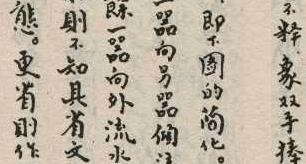 不粹，象双手揍
即下圖的简化。
一器向另器倾注
縣一器向外流水
則不知其省文
態。更省則作